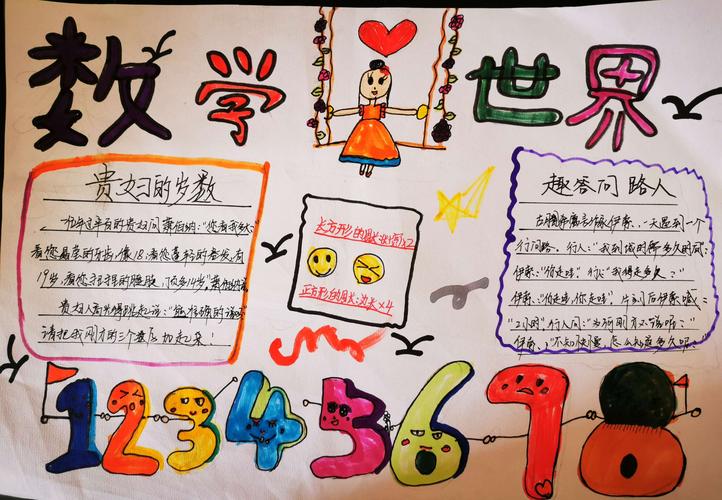 数学世界
贵妇的岁数
一位中年的贵妇问萧伯纳:"您看我多大?
看您晶莹的牙齿,像18,看您蓬松的卷发,有
19岁,看您的腰肢,顶多14岁"萧伯纳说
贵妇人高兴得跳起说:
请把我刚才的三个数加起来!
长方形的周长:(长+宽)×2
正方形的周长:边长×4
趣答问路人
古希腊寓言家伊索,一天遇到一个
行问路,行人:"我到城的需多久的呢
伊索:"你走哇"行人:"我得走多久?"
伊索:"你走哇,你走哇"片刻后伊索喊:
"2小时"行人问:"为何刚才不说呢?"
伊索:"不知快慢,怎么知走多久呢?
1 2 3 4 5 6 7 8